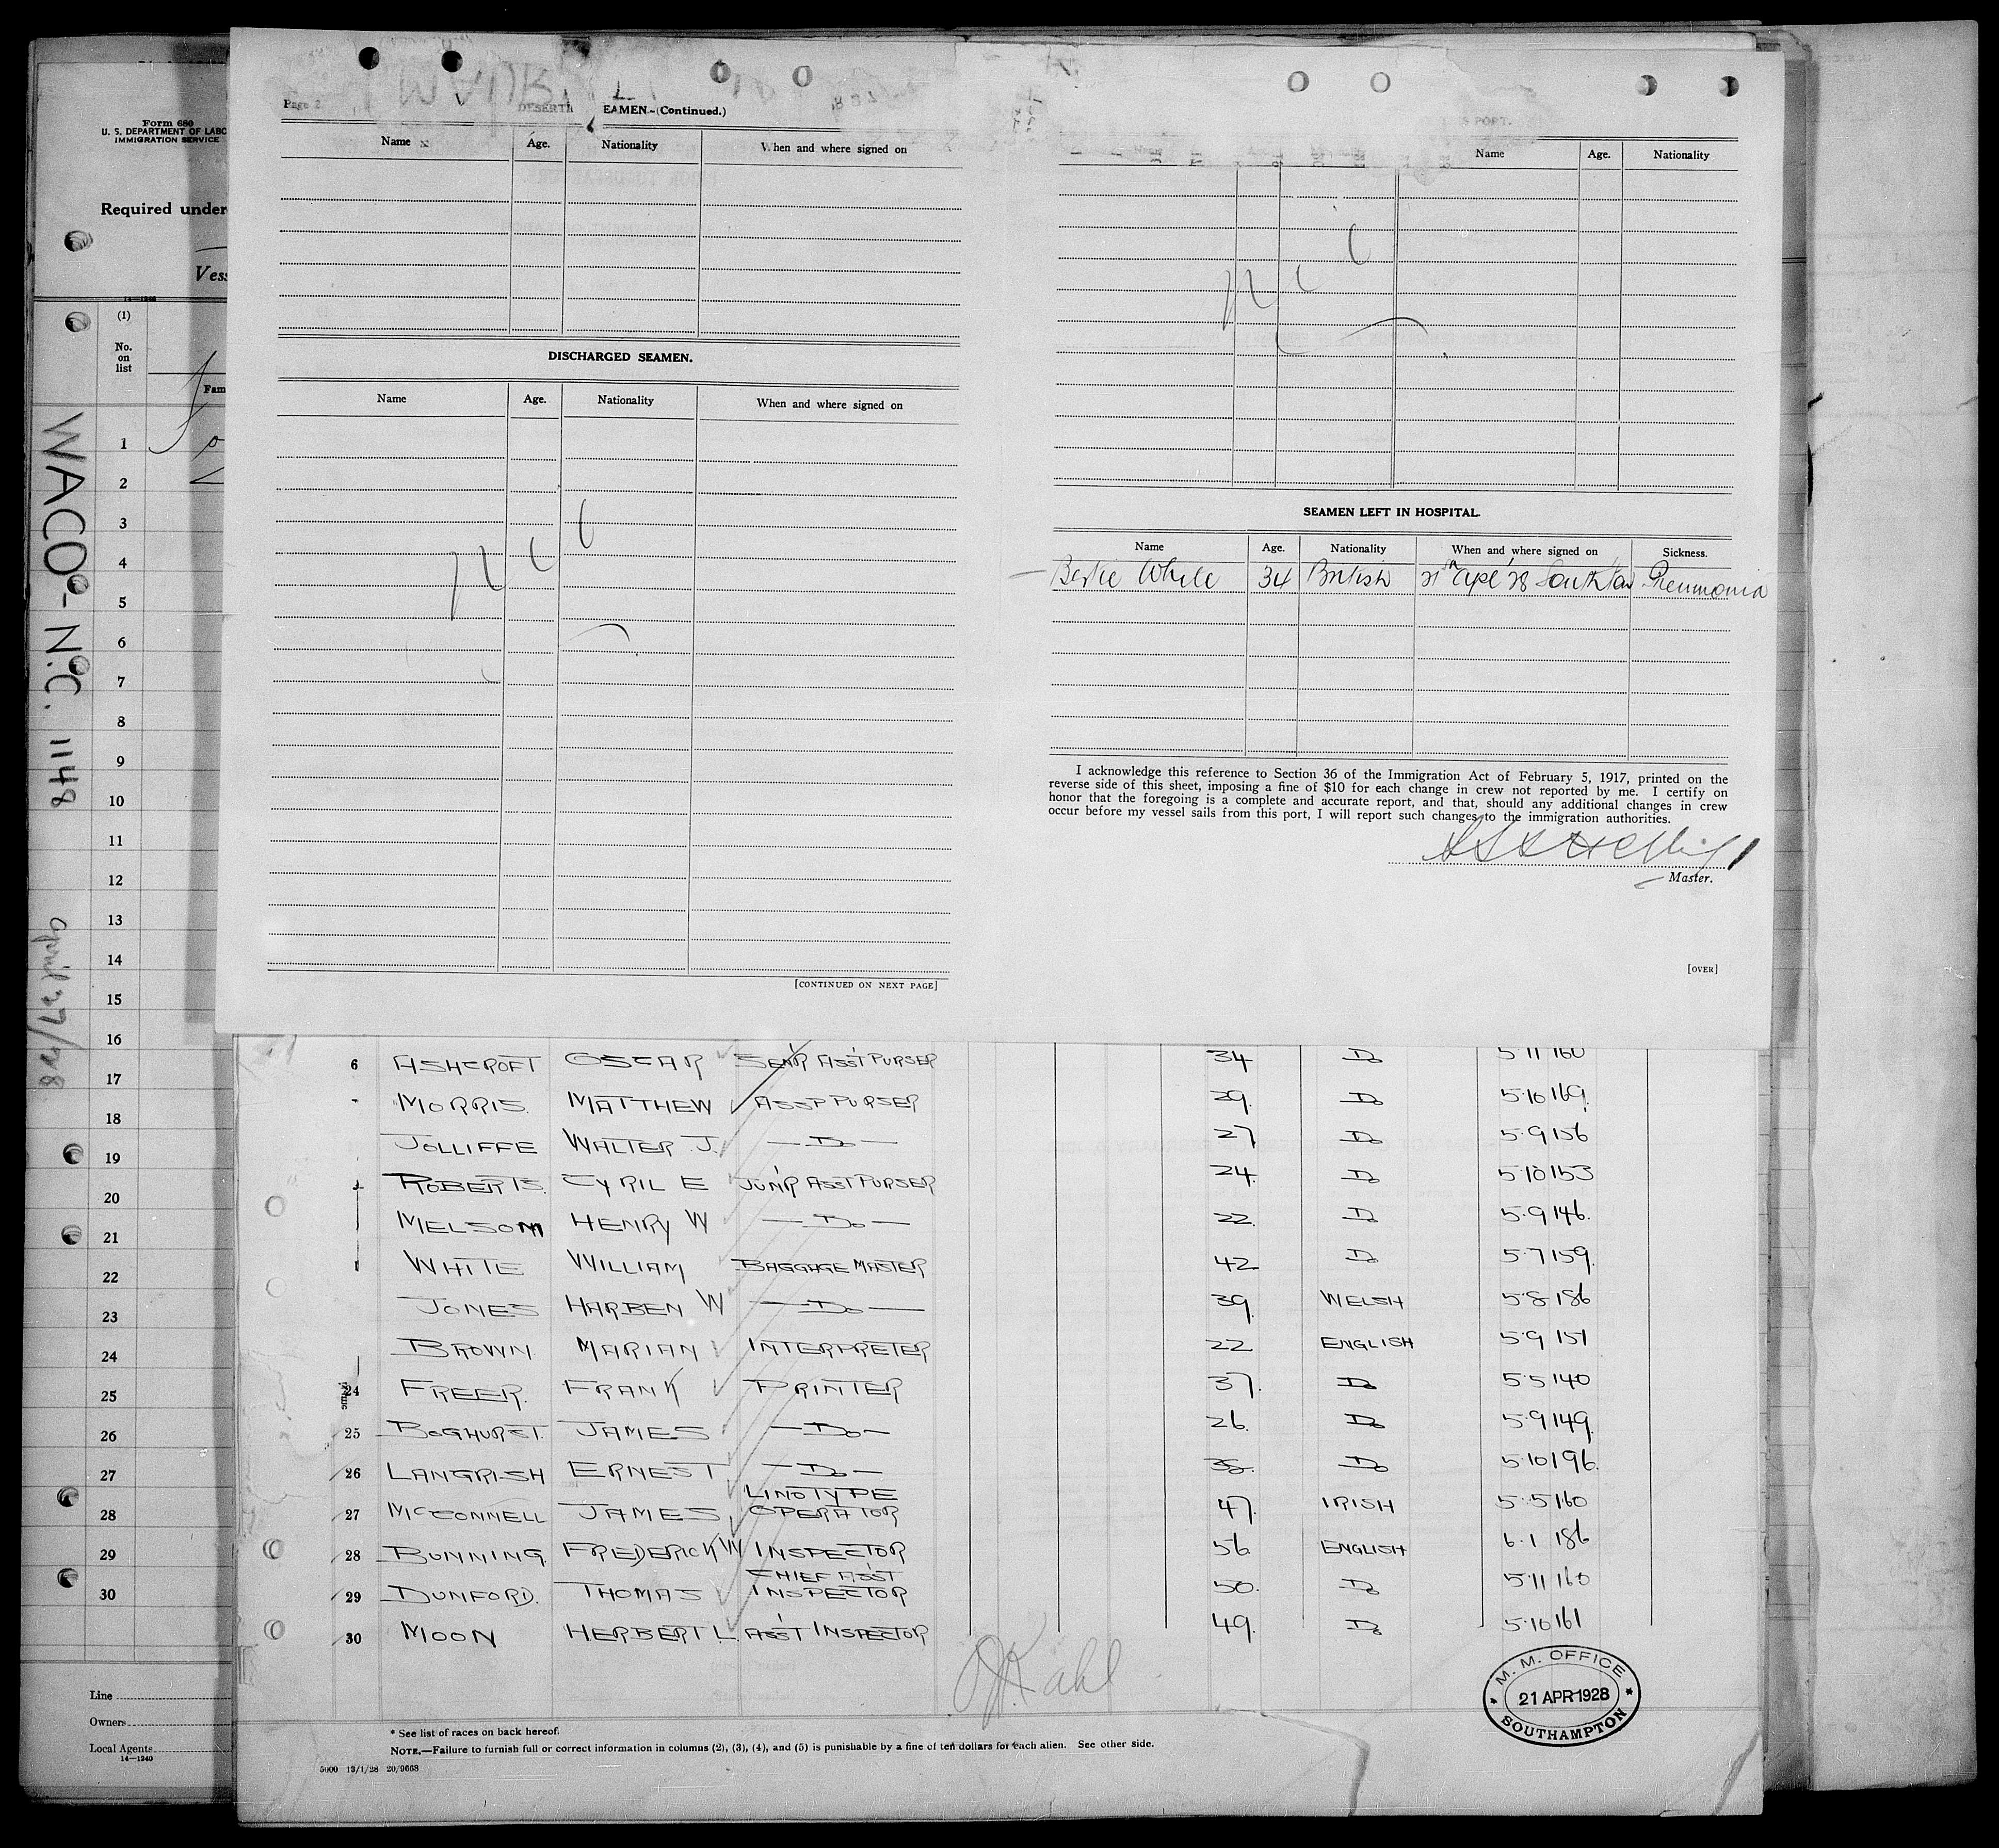 Form 680
U. S. DEPARTMENT OF LABO
IMMIGRATION SERVICE
Required under
Vess
14—1240
(1)
No.
on
list
Fam
1
2
3
4
5
6
7
8
9
10
11
12
13
14
15
16
17
18
19
20
21
22
23
24
25
26
27
28
29
30
WACO - N.C. 1148
April 27/28
Line
Owners
Local Agents
14—1240
Page 2
DESERT EAMEN—(Continued.)
Name Age. Nationality When and where signed on
DISCHARGED SEAMEN.
Name Age. Nationality When and where signed on
[CONTINUED ON NEXT PAGE]
S PORT.
Name Age. Nationality
SEAMEN LEFT IN HOSPITAL.
Name Age. Nationality When and where signed on Sickness.
Bertie White 34 British 21st Apl '28 Southton Pneumonia
I acknowledge this reference to Section 36 of the Immigration Act of February 5, 1917, printed on the
reverse side of this sheet, imposing a fine of $10 for each change in crew not reported by me. I certify on
honor that the foregoing is a complete and accurate report, and that, should any additional changes in crew
occur before my vessel sails from this port, I will report such changes to the immigration authorities.
Master.
[OVER]
6 ASHCROFT OSCAR SENR ASST PURSER 34 Do 5·11 160
MORRIS. MATTHEW ASST PURSER 29. Do 5·10 169.
JOLLIFFE WALTER J. — Do — 27 Do 5·9 156
ROBERTS. CYRIL E JUNR ASST PURSER 24. Do 5·10 153
MELSOM HENRY W — Do — 22. Do 5·9 146.
WHITE WILLIAM BAGGAGE MASTER 42 Do 5·7 159.
JONES HARBEN W — Do — 39. WELSH 5·8 186
BROWN. MARIAN INTERPRETER 22 ENGLISH 5·9 151
24 FREER. FRANK PRINTER 37. Do 5·5 140
25 BOGHURST. JAMES — Do — 26. Do 5·9 149.
26 LANGRISH ERNEST — Do — 38. Do 5·10 196.
27 McCONNELL JAMES LINOTYPE OPERATOR 47. IRISH 5·5 160
28 BUNNING. FREDERICK W INSPECTOR 56 ENGLISH 6·1 186
29 DUNFORD. THOMAS CHIEF ASST INSPECTOR 50. Do 5·11 160
30 MOON HERBERT L. ASST INSPECTOR 49. Do 5·10 161
Kahl
M. M. OFFICE
21 APR 1928
SOUTHAMPTON
* See list of races on back hereof.
NOTE.—Failure to furnish full or correct information in columns (2), (3), (4), and (5) is punishable by a fine of ten dollars for each alien. See other side.
5000 13/1/28 20/9668